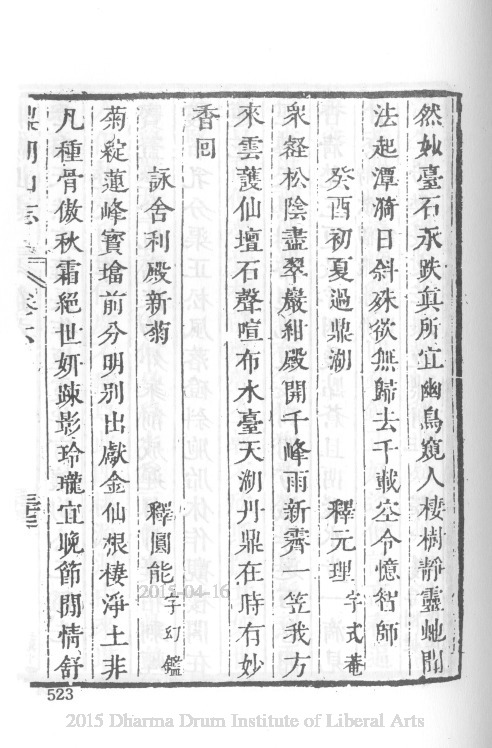 然如臺石永趺真所宜幽鳥窺人棲樹靜靈虵聞
法起潭漪日斜殊欲無歸去千載空令憶智師
癸酉初夏過鼎湖 釋元理 字式菴
衆經松陰盡翠巖紺殿開千峰雨新霽一笠我方
來雲護仙壇石聲喧布水臺天湖丹鼎在時有妙
香回
詠舍利殿新菊 釋圓能 字幻鑑
菊綻蓮峰寶墖前分明別出獻金仙根棲淨土非
凡種骨傲秋霜絕世妍踈影玲瓏宜晚節閒情舒
鼎湖山志 卷六 三十三
523
2015-04-16
2015 Dharma Drum Institute of Liberal Arts